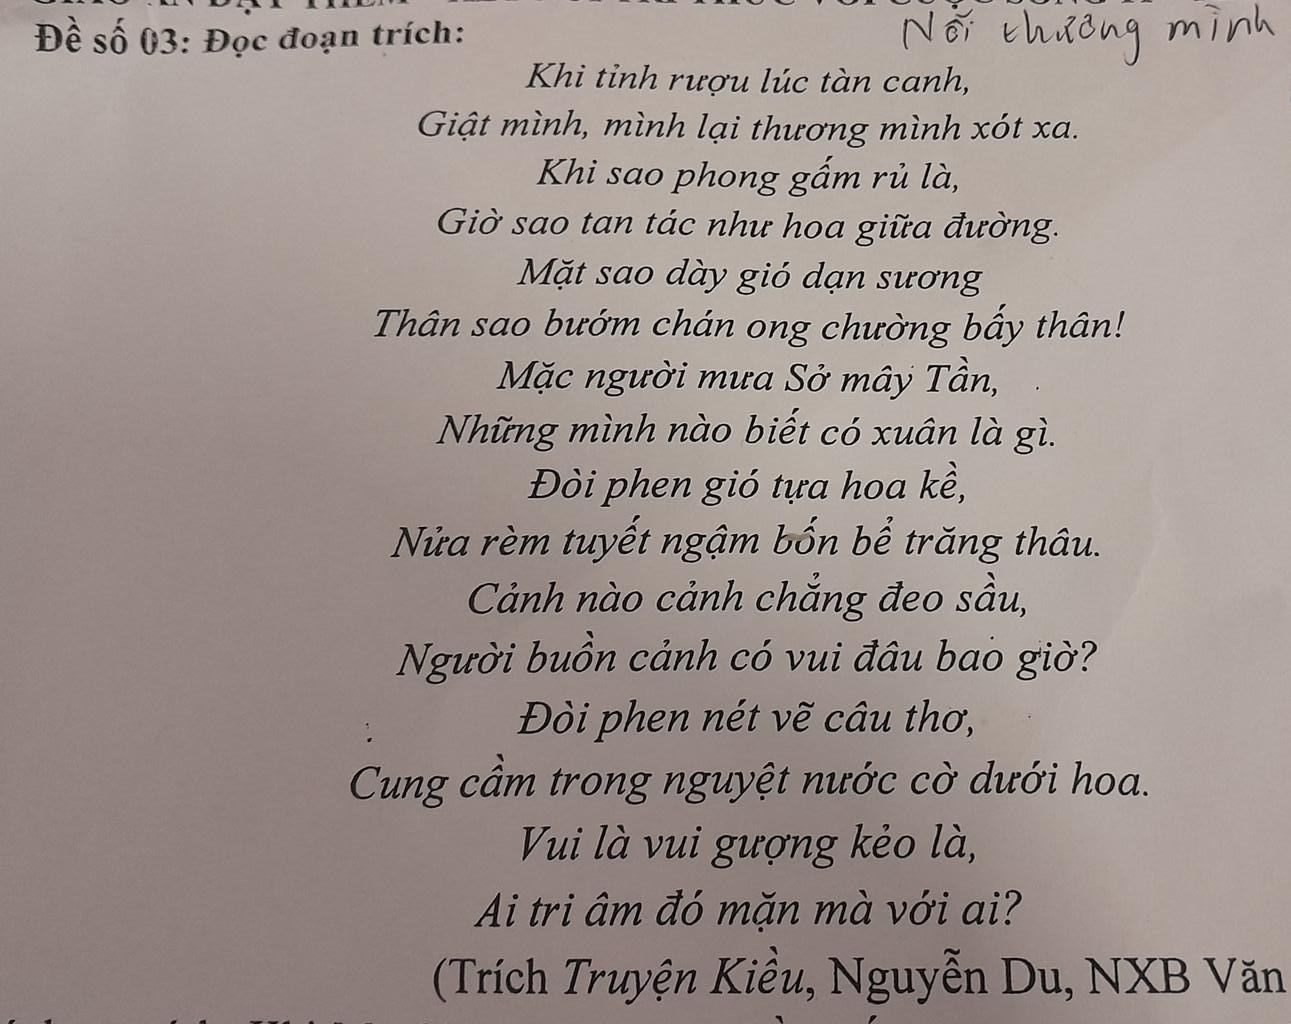 Đề số 03: Đọc đoạn trích:
Nỗi thương mình
Khi tỉnh rượu lúc tàn canh,
Giật mình, mình lại thương mình xót xa.
Khi sao phong gấm rủ là,
Giờ sao tan tác như hoa giữa đường.
Mặt sao dày gió dạn sương
Thân sao bướm chán ong chường bấy thân!
Mặc người mưa Sở mây Tần,
Những mình nào biết có xuân là gì.
Đòi phen gió tựa hoa kề,
Nửa rèm tuyết ngậm bốn bể trăng thâu.
Cảnh nào cảnh chẳng đeo sầu,
Người buồn cảnh có vui đâu bao giờ?
Đòi phen nét vẽ câu thơ,
Cung cầm trong nguyệt nước cờ dưới hoa.
Vui là vui gượng kẻo là,
Ai tri âm đó mặn mà với ai?
(Trích Truyện Kiều, Nguyễn Du, NXB Văn